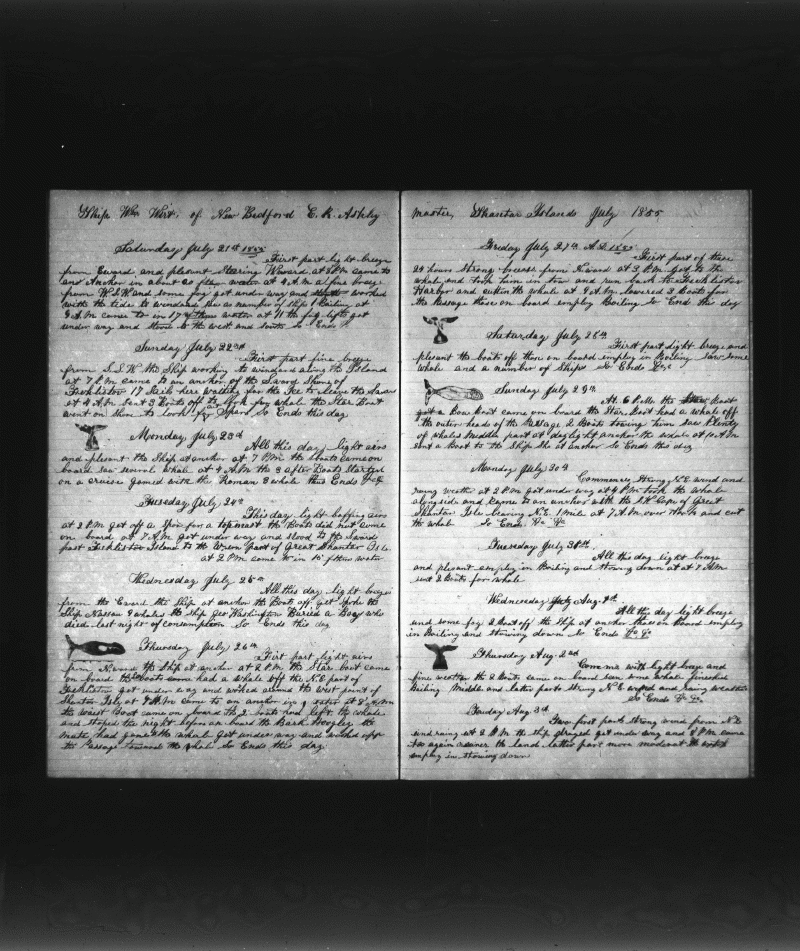 Ship Wm Wirt. of New Bedford E. K. Ashley
Saturday July 21st 1855
First part light breeze
from Eward and plesent Stearing Wward at 8 PM came to
and Anchor in about 20 fthm water at 4 A.M a fine breeze
from W.S.W and some fog got under way and worked
with the tide to windward a number of Ships Boiling at
9 A.M came to in 17 fthms water at 11 the fog lifts got
under way and stood to the west and south So Ends
Sunday July 22nd
First part fine breeze
from S.S.W the Ship working to windard along the Island
at 7 P.M came to an anchor of the Sward Shore of
Fecklistor 17 Sails here waiting for the Ice to leave the
at 4 A.M Sent 3 Boats off to look for whale the Star Boat
went on Shore to look for Spars So Ends this day
Monday July 23d
All this day light airs
and plesent the Ship at anchor at 7 P.M the boats came on
board saw several whale at 4 A.M the 3 after Boats Started
on a cruise gamed with the Roman 8 whale this Ends &c
Tuesday July 24th
This day light baffing airs
at 2 P.M got off a Spar for a topmast the Boats did not come
on board at 7 A.M got under way and stood to the Sward
past Fecklistor Island to the Wern part of Great Shantar Isle.
at 2 P.M came to in 15 fthms water
Wednesday July 25th
All this day light breeze
from the Eward the Ship at anchor the Boats off got Spoke the
Ship Nassau 8 whales the Ship Geo Washington Buried a Boy who
died last night of consumption So Ends this day
Thursday July 26th
First part light airs
from Nward the Ship at anchor at 2 P.M the Star boat came
on board the Boats some had a whale off the N.E part of
Fecklistor got under way and worked around the west point of
Shantar Isle at 7 P.M came to an anchor in 9 water at 8 P.M
the waist Boat came on board the 2 boats had left the whale
and stoped the night before on board the Bark the
mate had gone to the whale got under way and worked off
the Passage toward the whale So Ends this day
master, Shantar Islands July 1855
Friday July 27th A.D 1855
First part of these
24 hours strong breese from Nward at 3 P.M got to the
whale and took him in tow and run back to Fecklistor
Harbor and cut in the whale at 8 A.M Lowered 2 Boats for
the Passage those on board employ Boiling So End this day
Saturday July 28th
First part light breeze and
plesent the boats off those on board employ in Boiling Saw some
whale and a number of Ships So Ends &c
Sunday July 29th
At 6 P.M. the East
got a Bow Boat came on board the Star Boat had a whale off
the outer heads of the Passage 2 Boats towing him saw Plenty
of whales Middle part at daylight anchor the whale at 10 A.M
sent a Boat to the Ship She at anchor So Ends this day
Monday July 30th
Commences Strong N.E. wind and
rainy weather at 2 P.M got under way at 4 P.M took the whale
alongside and came to an anchor with the S.W Cape of Great
Shantar Isle bearing N.E. 1 mile at 7 A.M over work and cut
the whale So Ends &c &c
Tuesday July 31st
All this day light breeze
and plesant employ in Boiling and stowing down at 7 A.M
sent 2 Boats for whale
Wednesday July Aug. 1st
All this day light breeze
and some fog 2 Boat off the Ship at anchor those on board employ
in Boiling and stowing down So Ends &c &c
Thursday Aug. 2nd
Comences with light breeze and
fine weather the 2 Boats came on board saw some whale finished
Boiling Middle and latter parts strong N.E wind and rainy weather
So Ends &c &c
Friday Aug 3rd
Two first parts strong wind from N.E
and rainy at 2 P.M the ship draged got under way and 8 P.M came
too again nearer the land latter part more moderate the work
employ in stowing down